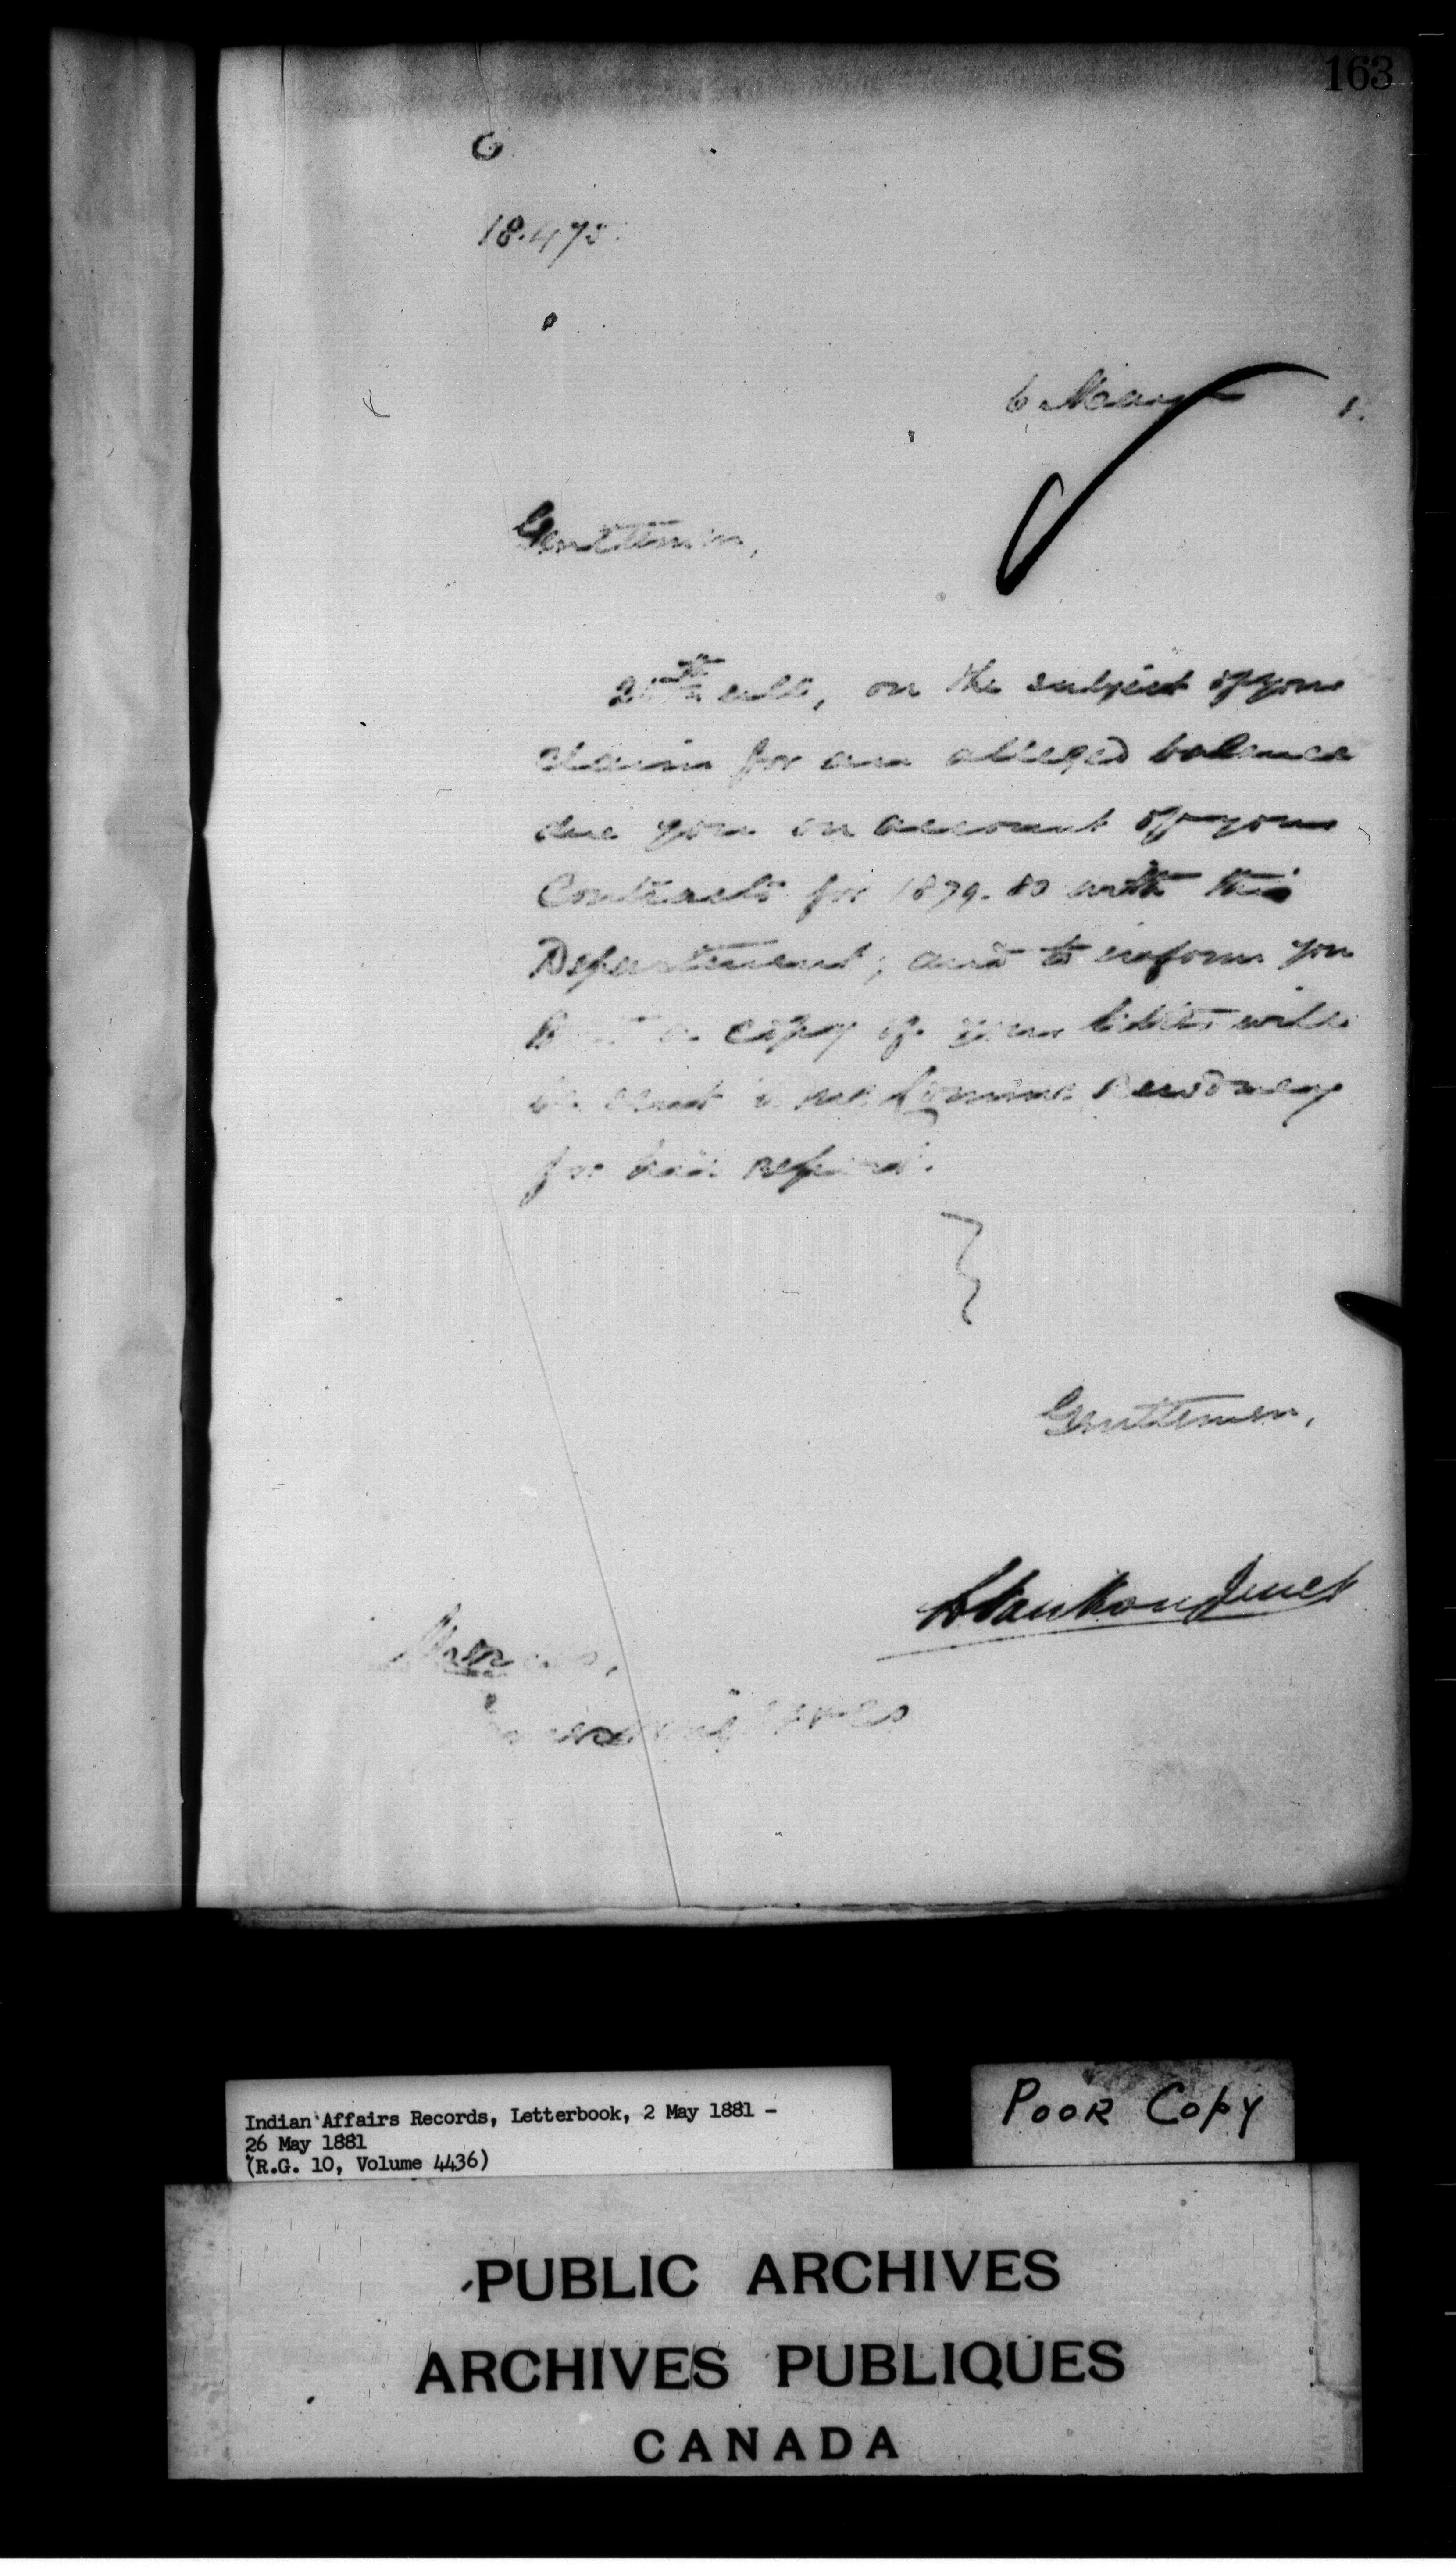 163
6 May 1.
Gentlemen,
ulto, on the subject of your
claim for an alleged balance
due you on account of your
Contracts for 1879-80 with this
Department; and to inform you
a copy of your letter will
be sent Dewdney
for his report.
Gentlemen,
L VanKoughnet
Messrs,
Indian Affairs Records, Letterbook, 2 May 1881 -
26 May 1881
(R.G. 10, Volume 4436)
POOR COPY
PUBLIC ARCHIVES
ARCHIVES PUBLIQUES
CANADA